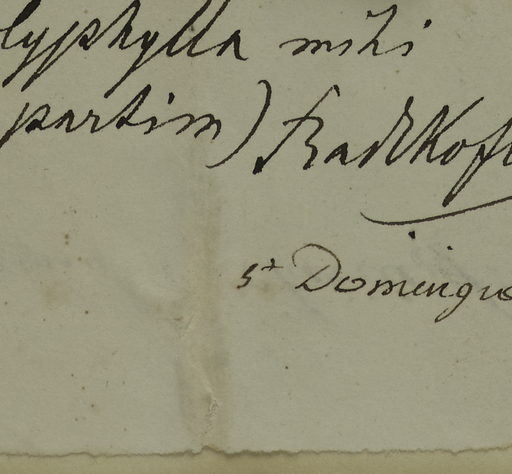 lyphylla mihi
partim) Radlkofe
St Domingue